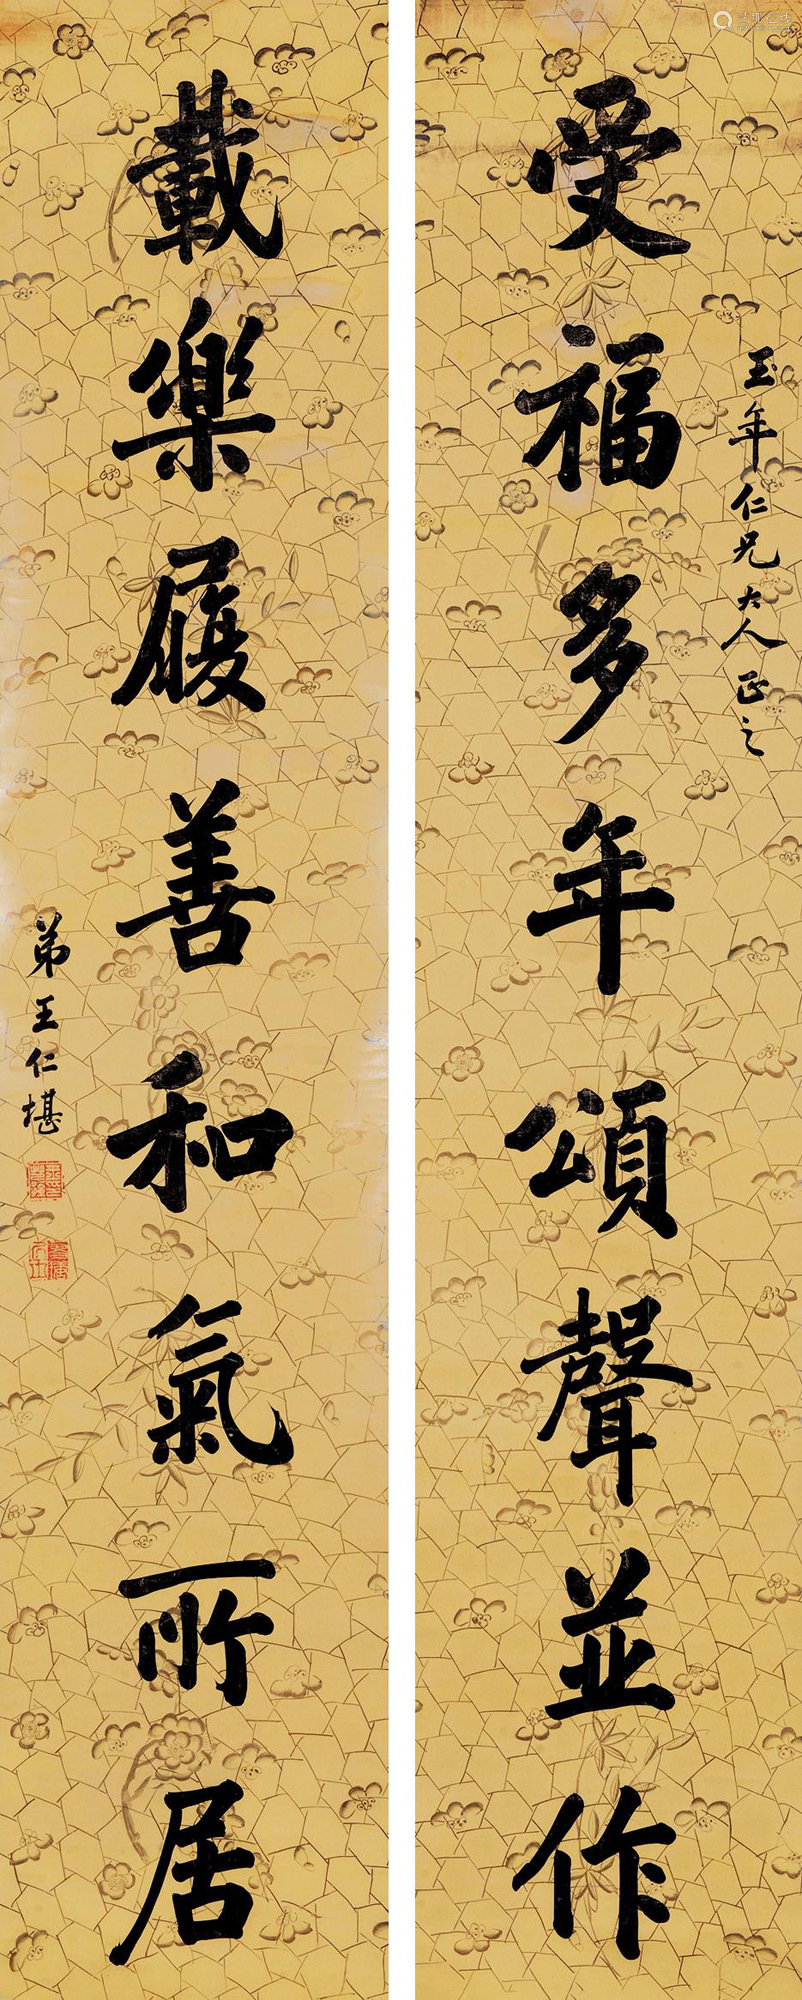 受福多年頌聲並作
玉年仁兄大人正之
載樂履善和氣所居
弟王仁堪